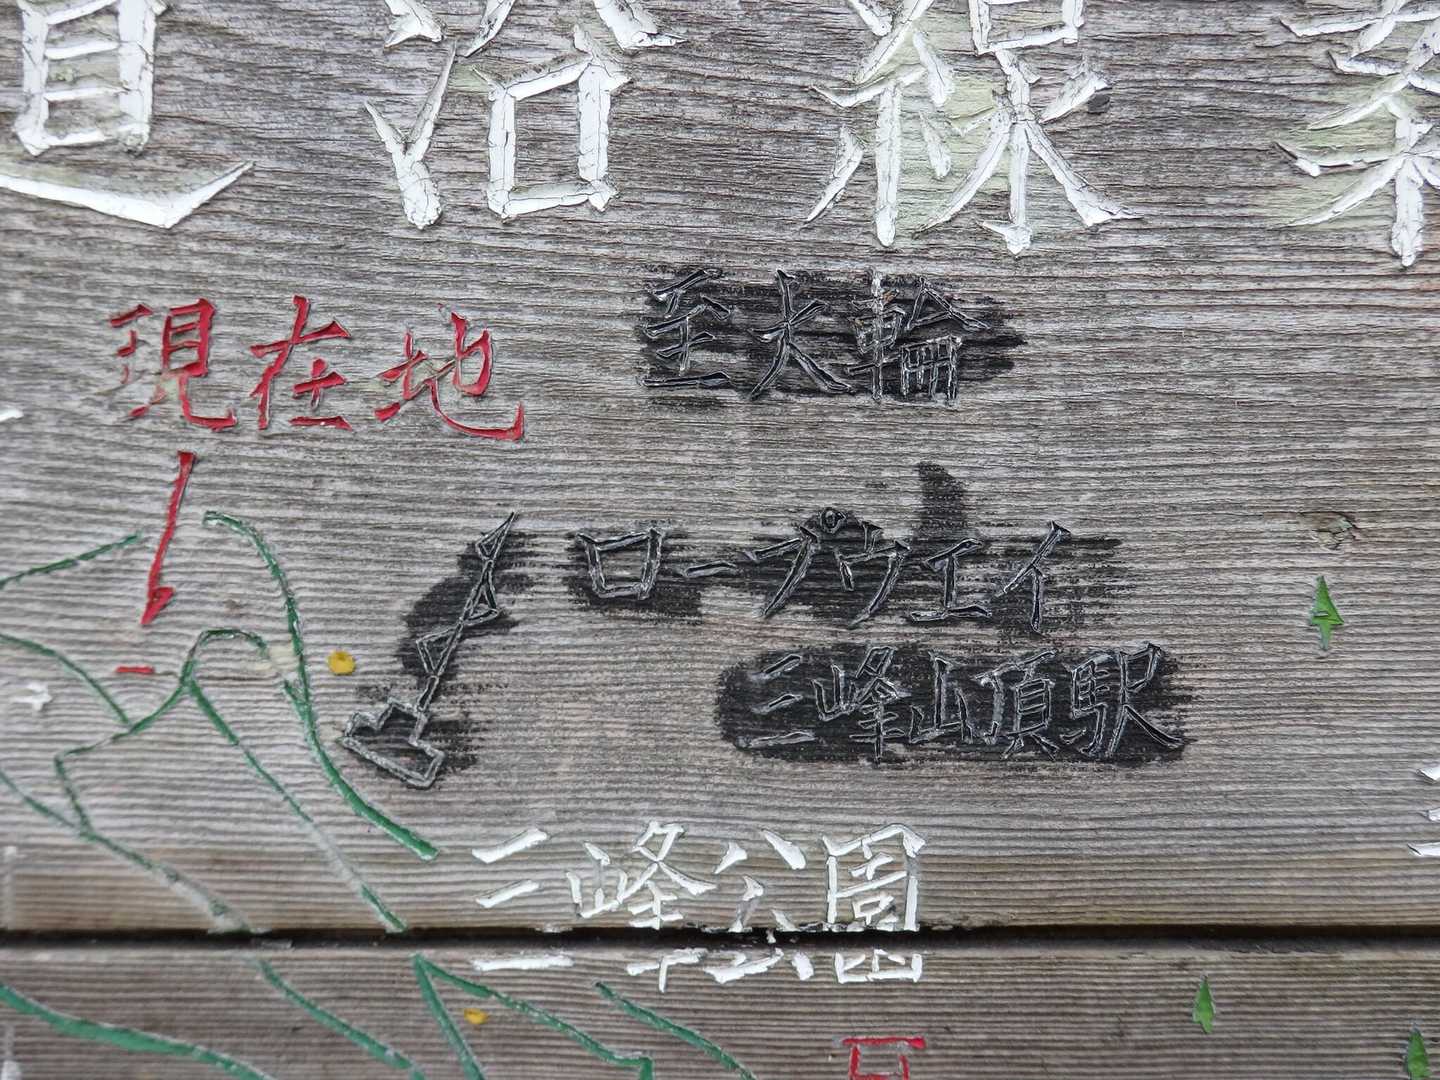 道沿線
現在地
至大輪
ロープウエイ
三峰山頂駅
三峰公園